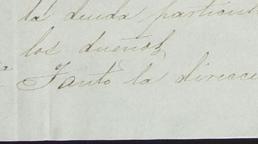 la deuda particul
los dueños
Tanto la direcci